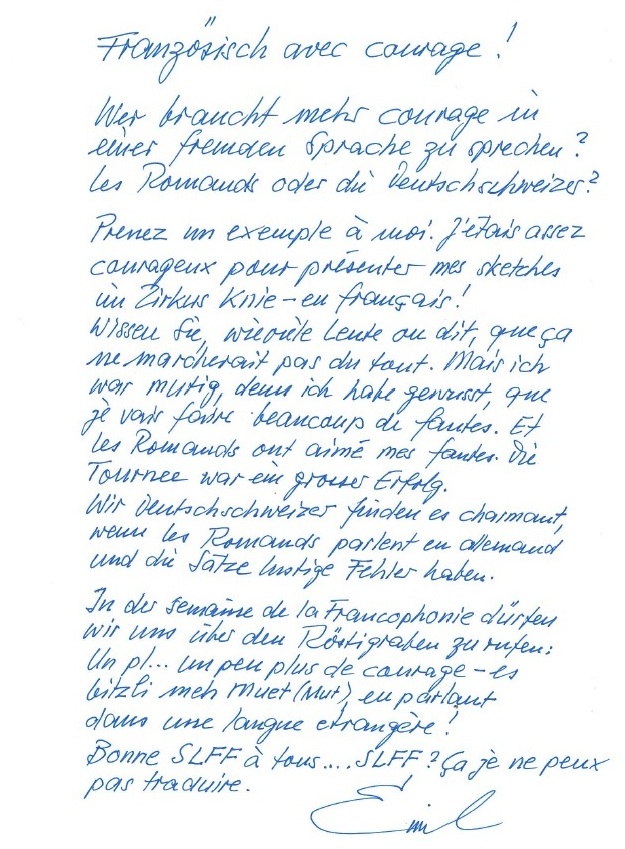 Französisch avec courage!
Wer braucht mehr courage in
einer fremden Sprache zu sprechen?
Les Romands oder die Deutschschweizer?
Prenez un exemple à moi. J'étais assez
courageux pour présenter mes sketches
im Zirkus Knie - en français!
Wissen Sie, wieviele Leute on dit, que ça
ne marcherait pas du tout. Mais ich
war mutig, denn ich habe gewusst, que
je vais faire beaucoup de fautes. Et
les Romands ont aimé mes fautes. Die
Tournee war ein grosser Erfolg.
Wir Deutschschweizer finden es charmant,
wenn les Romands parlent en allemand
und die Sätze lustige Fehler haben.
In der semaine de la Francophonie dürfen
wir uns über den Röstigraben zurufen:
Un pl... un peu plus de courage - es
bitzli meh Muet (Mut), en parlant
dans une langue etrangère!
Bonne SLFF à tous.... SLFF? Ça je ne peux
pas traduire.
Emil